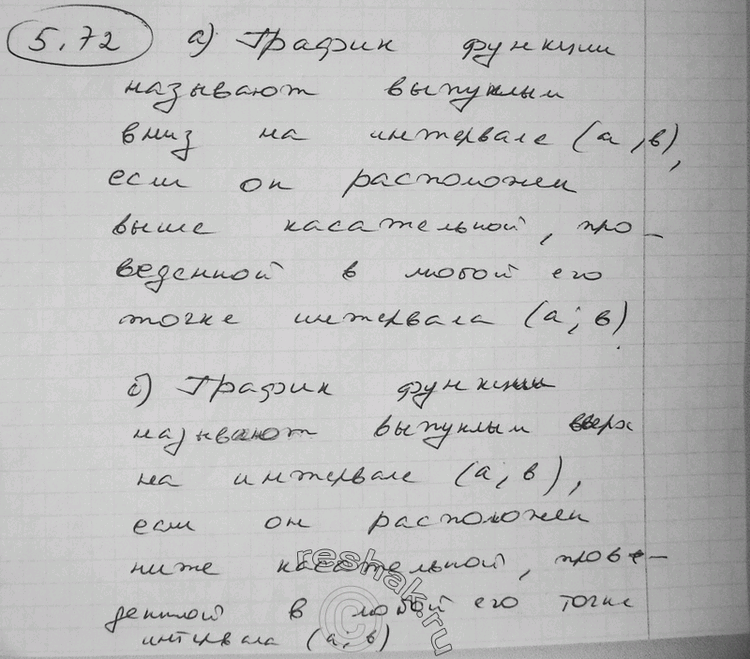 5.72 а) График функции
называют выпуклым
вниз на интервале (а ; в),
если он расположен
выше касательной, про-
веденной в любой его
точке интервала (а ; в).
б) График функции
называют выпуклым вверх
на интервале (а ; в),
если он расположен
ниже касательной, прове-
денной в любой его точке
интервала (а ; в)
reshak.ru
©